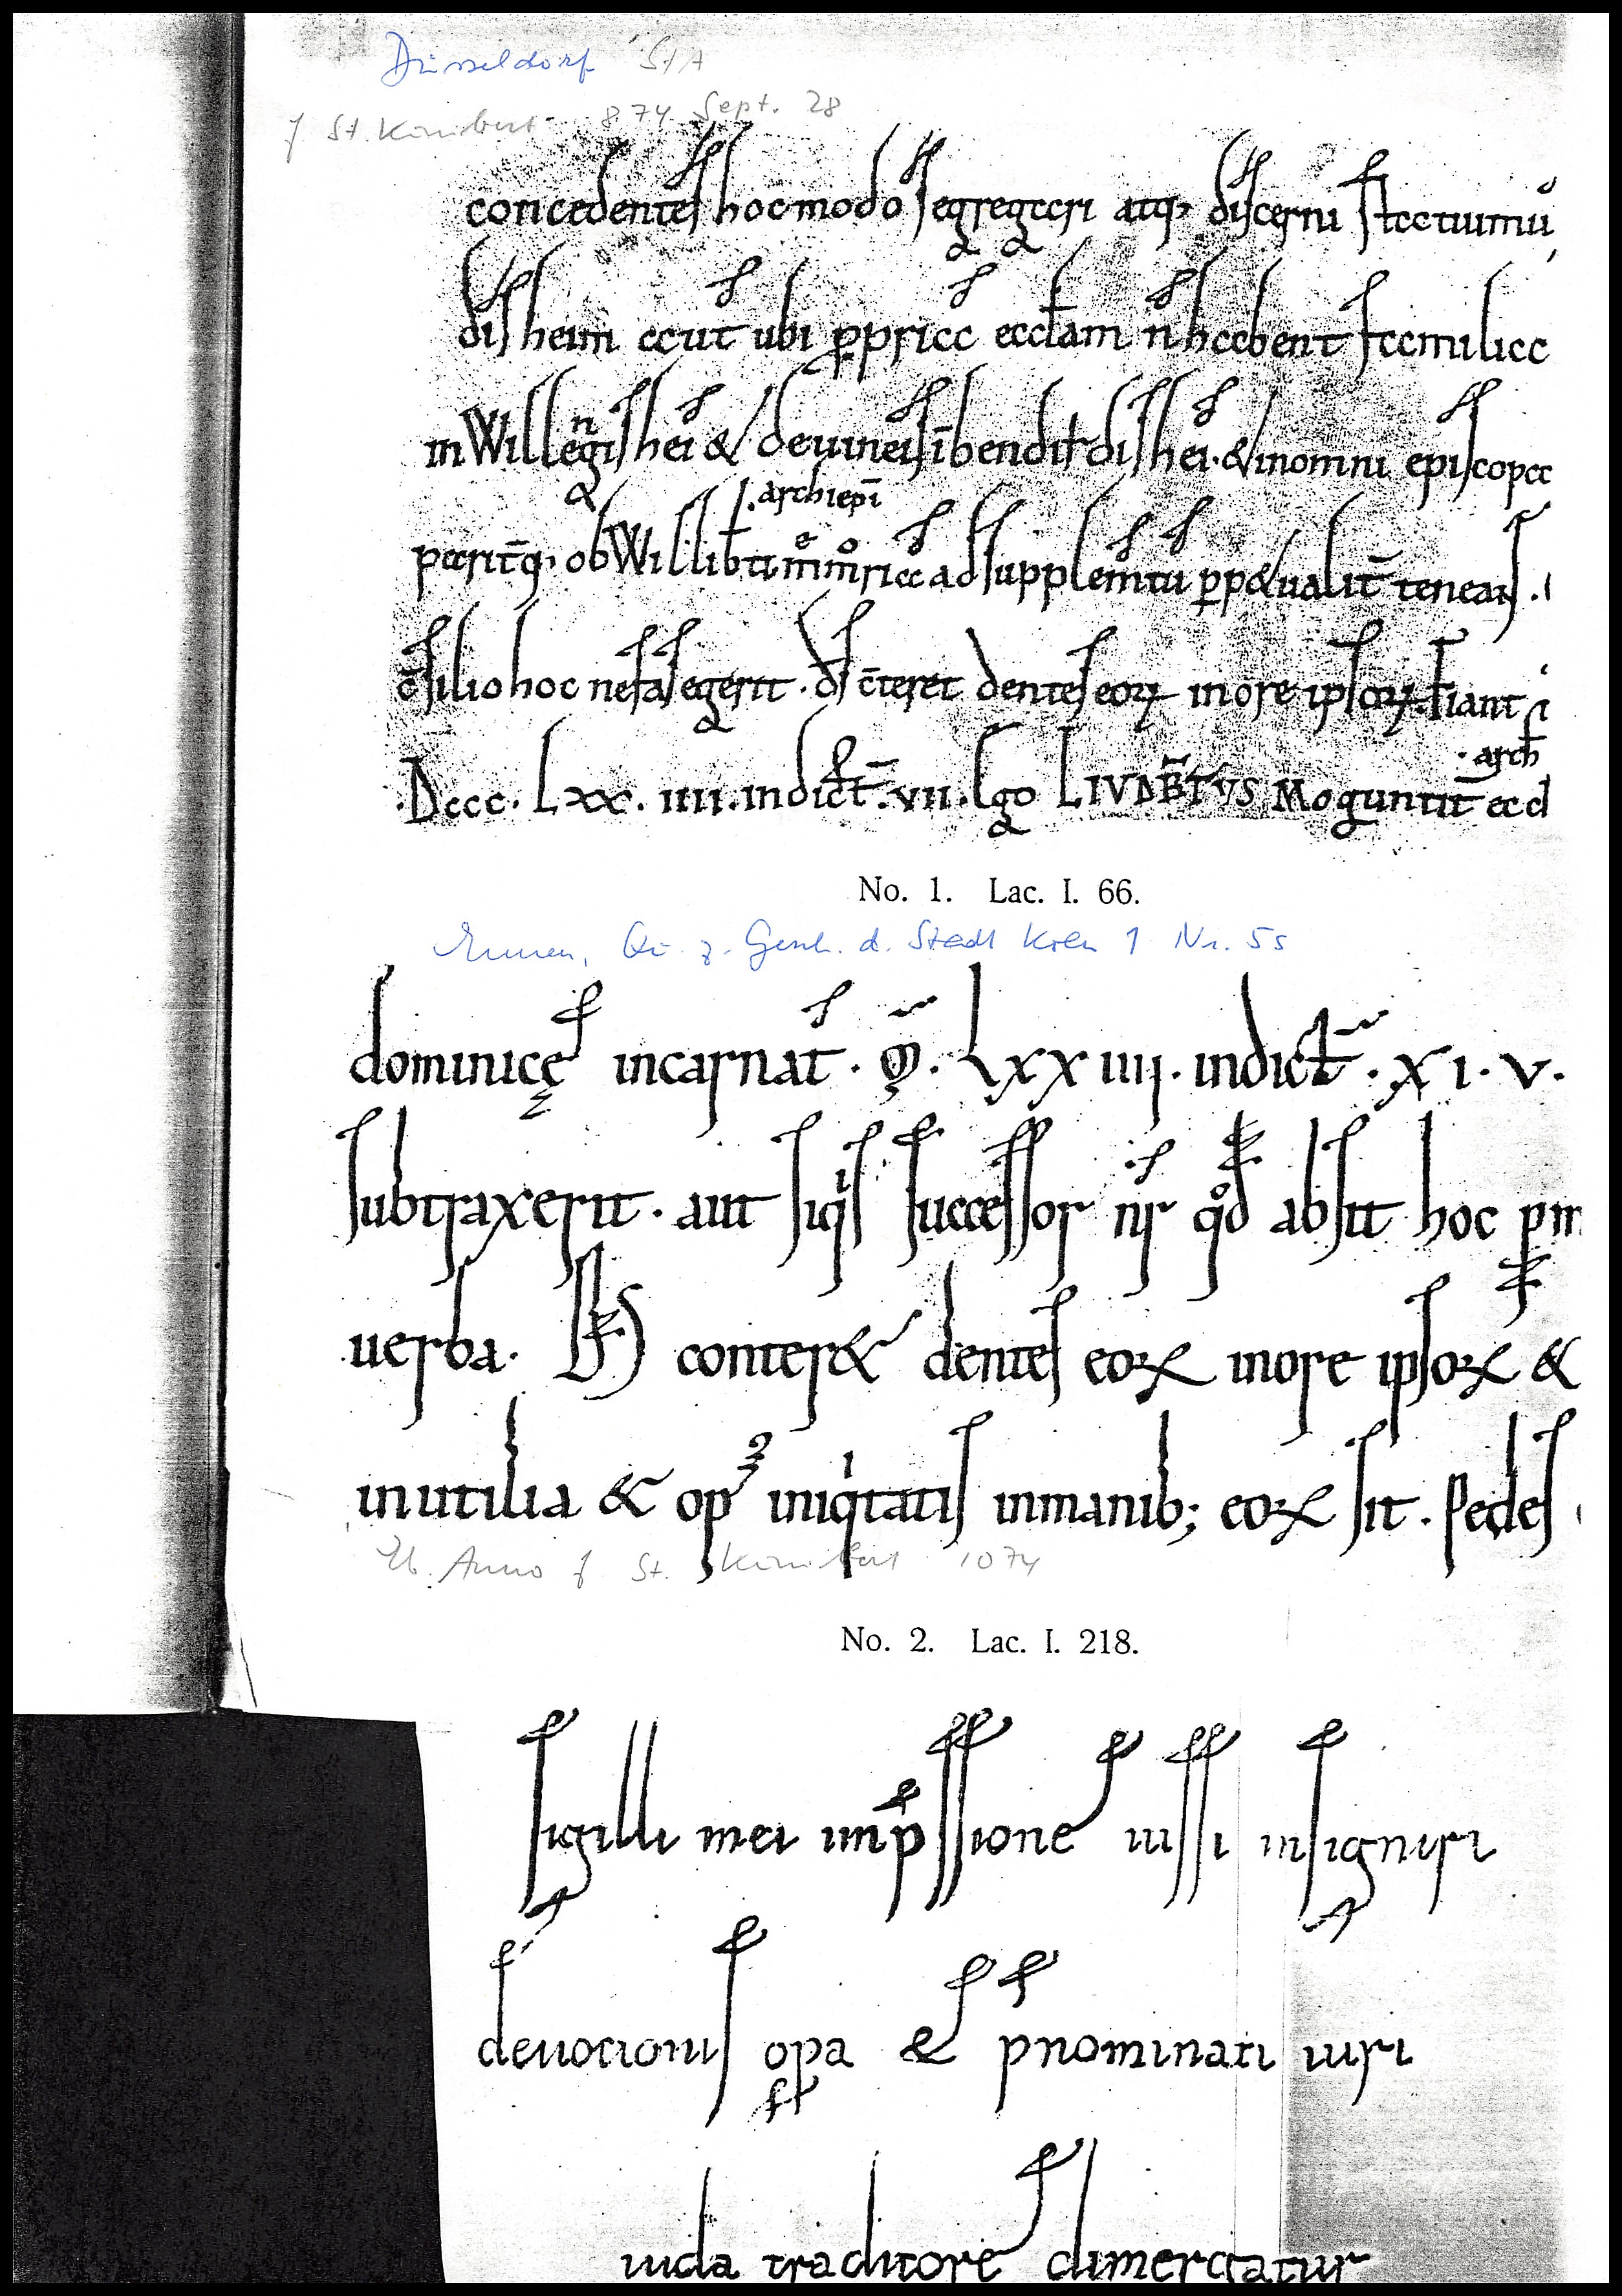 Düsseldorf StA
f St. Kunibert 874 Sept. 28
concedentes hoc modo segregari atq; discerni statuimu
disheim aut ubi ppria eccl̄am n̄ habent familia
n
in Willegishei & de uineis ī bendir disheī · & in omni episcopa
· archiepi
paritq; ob Willibti m̊m̊ria ad supplem̄tu pp&ualit̄ teneat ·
c̄silio hoc nefas egerit · d̄s c̄teret dentes eoꝝ in ore ipsoꝝ · fiant
· arch
· Dccc · Lxx · iiii · indict̄ · vii · Ego LIVDB̄TVS Moguntit̄ eccl
No. 1. Lac. I. 66.
Ennen, Qu. z. Gesch. d. Stadt Köln 1 Nr. 55
dominicę incarnat̄ · M̄ · Lxx iiii · indict̄ · XI · V ·
subtraxerit · aut siqis successor nr̄ qd absit hoc
uerba · D̄S conter& dentes eoꝝ in ore ipsoꝝ &
inutilia & op iniqtatis inmanib; eoꝝ sit · Pedes
Eb. Anno f St. Kunibert 1074
No. 2. Lac. I. 218.
sigilli mei imp̄ssione iussi insigniri
deuotionis opa & pnominati iuri
iuda traditore dimergatur